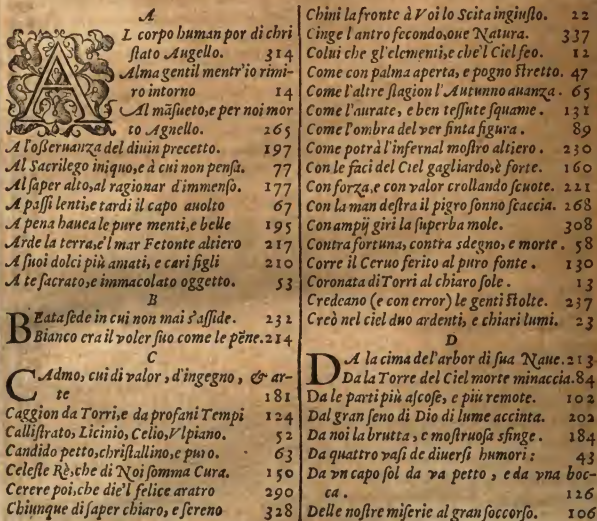 A
AL corpo human por di chri
stato Augello. 314
Alma gentil mentr'io rimi-
ro intorno 14
Al māsueto, e per noi mor
to Agnello. 265
A l'osseruanza del diuin precetto. 197
Al Sacrilego iniquo, e à cui non pensa. 77
Al saper alto, al ragionar d'immenso. 177
A passi lenti, e tardi il capo auolto 67
A pena hauea le pure menti, e belle 195
Arde la terra, e'l mar Fetonte altiero 217
A suoi dolci più amati, e cari figli 210
A te sacrato, e immacolato oggetto. 53
B
BEata sede in cui non mai s'asside. 232
Bianco era il voler suo come le pēne. 214
C
CAdmo, cui di valor, d'ingegno, & ar-
te 181
Caggion da Torri, e da profani Tempi 124
Callistrato, Licinio, Celio, Vlpiano. 52
Candido petto, christallino, e puro. 63
Celeste Rè, che di Noi somma Cura. 150
Cerere poi, che die'l felice aratro 290
Chiunque di saper chiaro, e sereno 328
Chini la fronte à Voi lo Scita ingiusto. 22
Cinge l'antro fecondo, oue Natura. 337
Colui che gl'elementi, e che'l Ciel feo. 12
Come con palma aperta, e pogno stretto. 47
Come l'altre stagion l'Autunno auanza. 65
Come l'aurate, e ben tessute squame. 131
Come l'ombra del ver finta figura. 89
Come potrà l'infernal mostro altiero. 230
Con le faci del Ciel gagliardo, è forte. 160
Con forza, e con valor crollando scuote. 221
Con la man destra il pigro sonno scaccia. 268
Con ampij giri la superba mole. 308
Contra fortuna, contra sdegno, e morte. 58
Corre il Ceruo ferito al puro fonte. 130
Coronata di Torri al chiaro sole. 13
Credeano (e con error) le genti stolte. 237
Creò nel ciel duo ardenti, e chiari lumi. 23
D
DA la cima de l'arbor di sua Naue. 213
Da la Torre del Ciel morte minaccia. 84
Da le parti più ascose, e più remote. 102
Dal gran seno di Dio di lume accinta. 202
Da noi la brutta, e mostruosa sfinge. 184
Da quattro vasi de diuersi humori: 43
Da vn capo sol da va petto, e da vna boc-
ca. 126
Delle nostre miserie al gran soccorso. 106